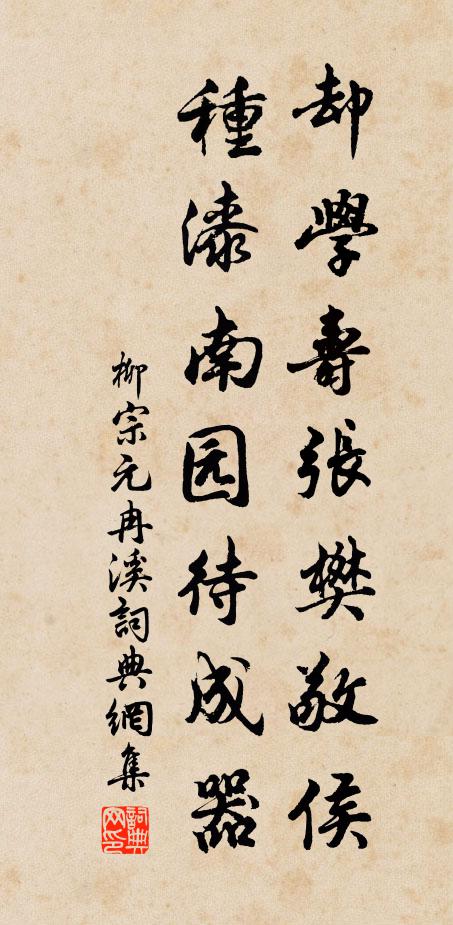 却學壽張樊敬侯
種漆南园待成器
柳宗元冉溪詞典網集
詞典网印